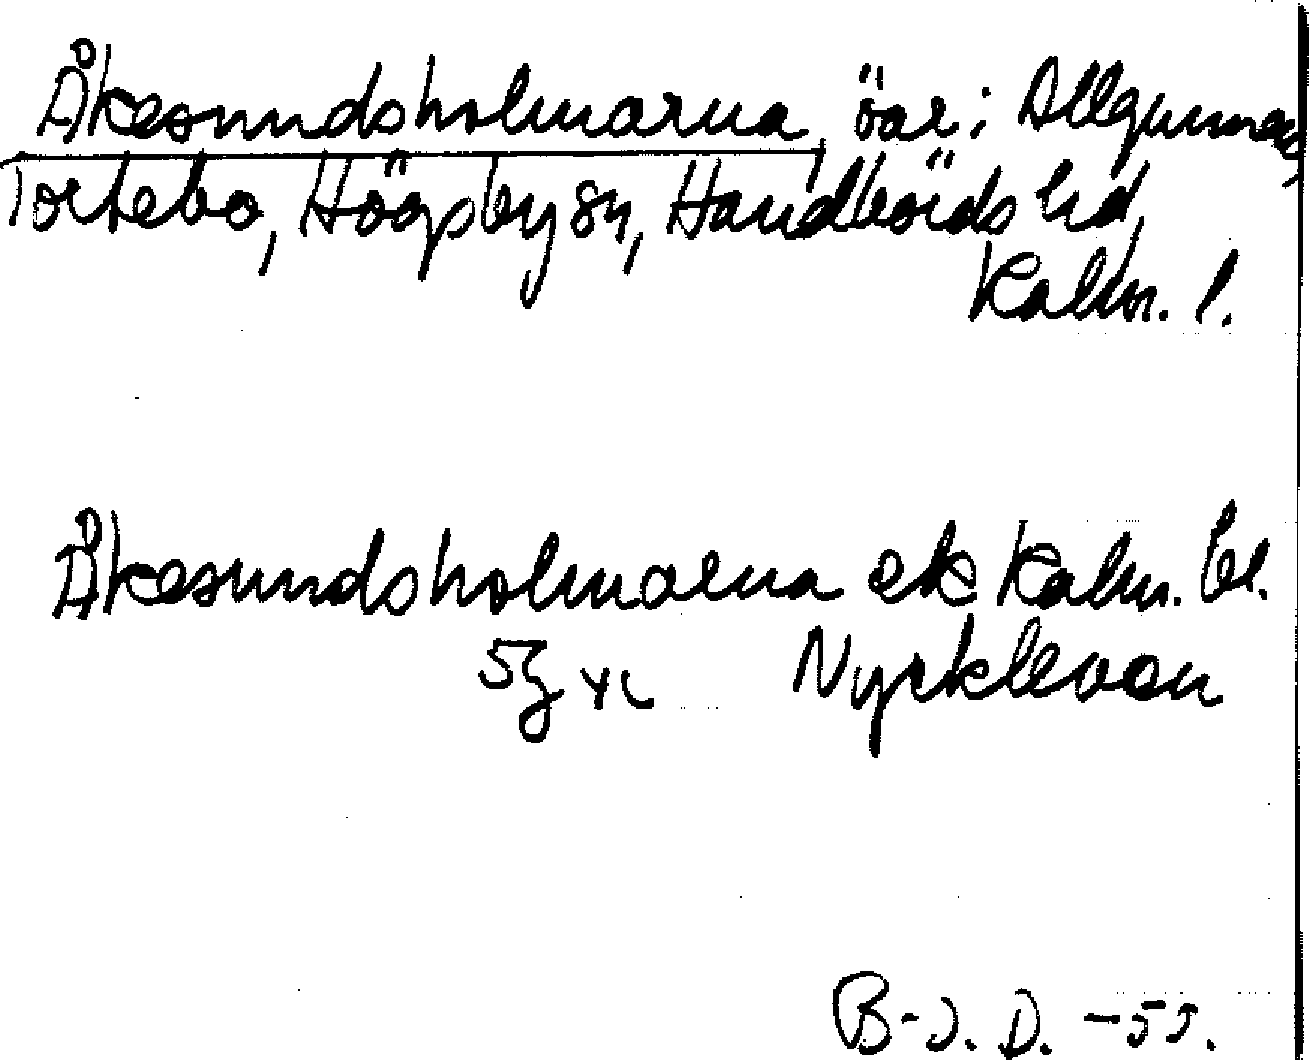 Åkesundsholmarna, öar i Allgunnen,
Torlebo, Högsby sn, Handbörds hd,
Kalm. l.
Åkesundsholmarna ek Kalm. bl.
5g
B-J. D. -55.